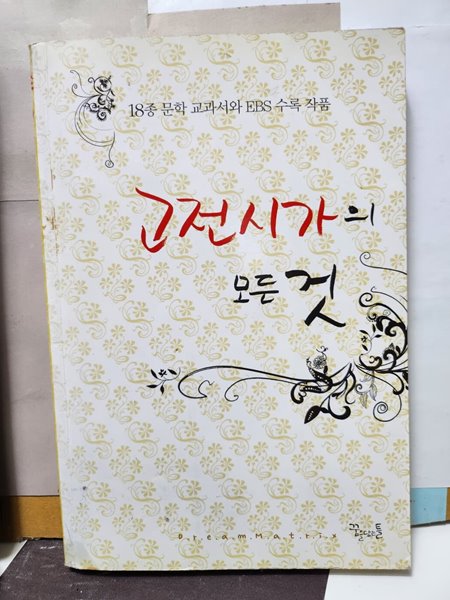 18종 문학 교과서와 EBS 수록 작품
고전시가의
모든 것
DreamMatrix
꿈을담는틀